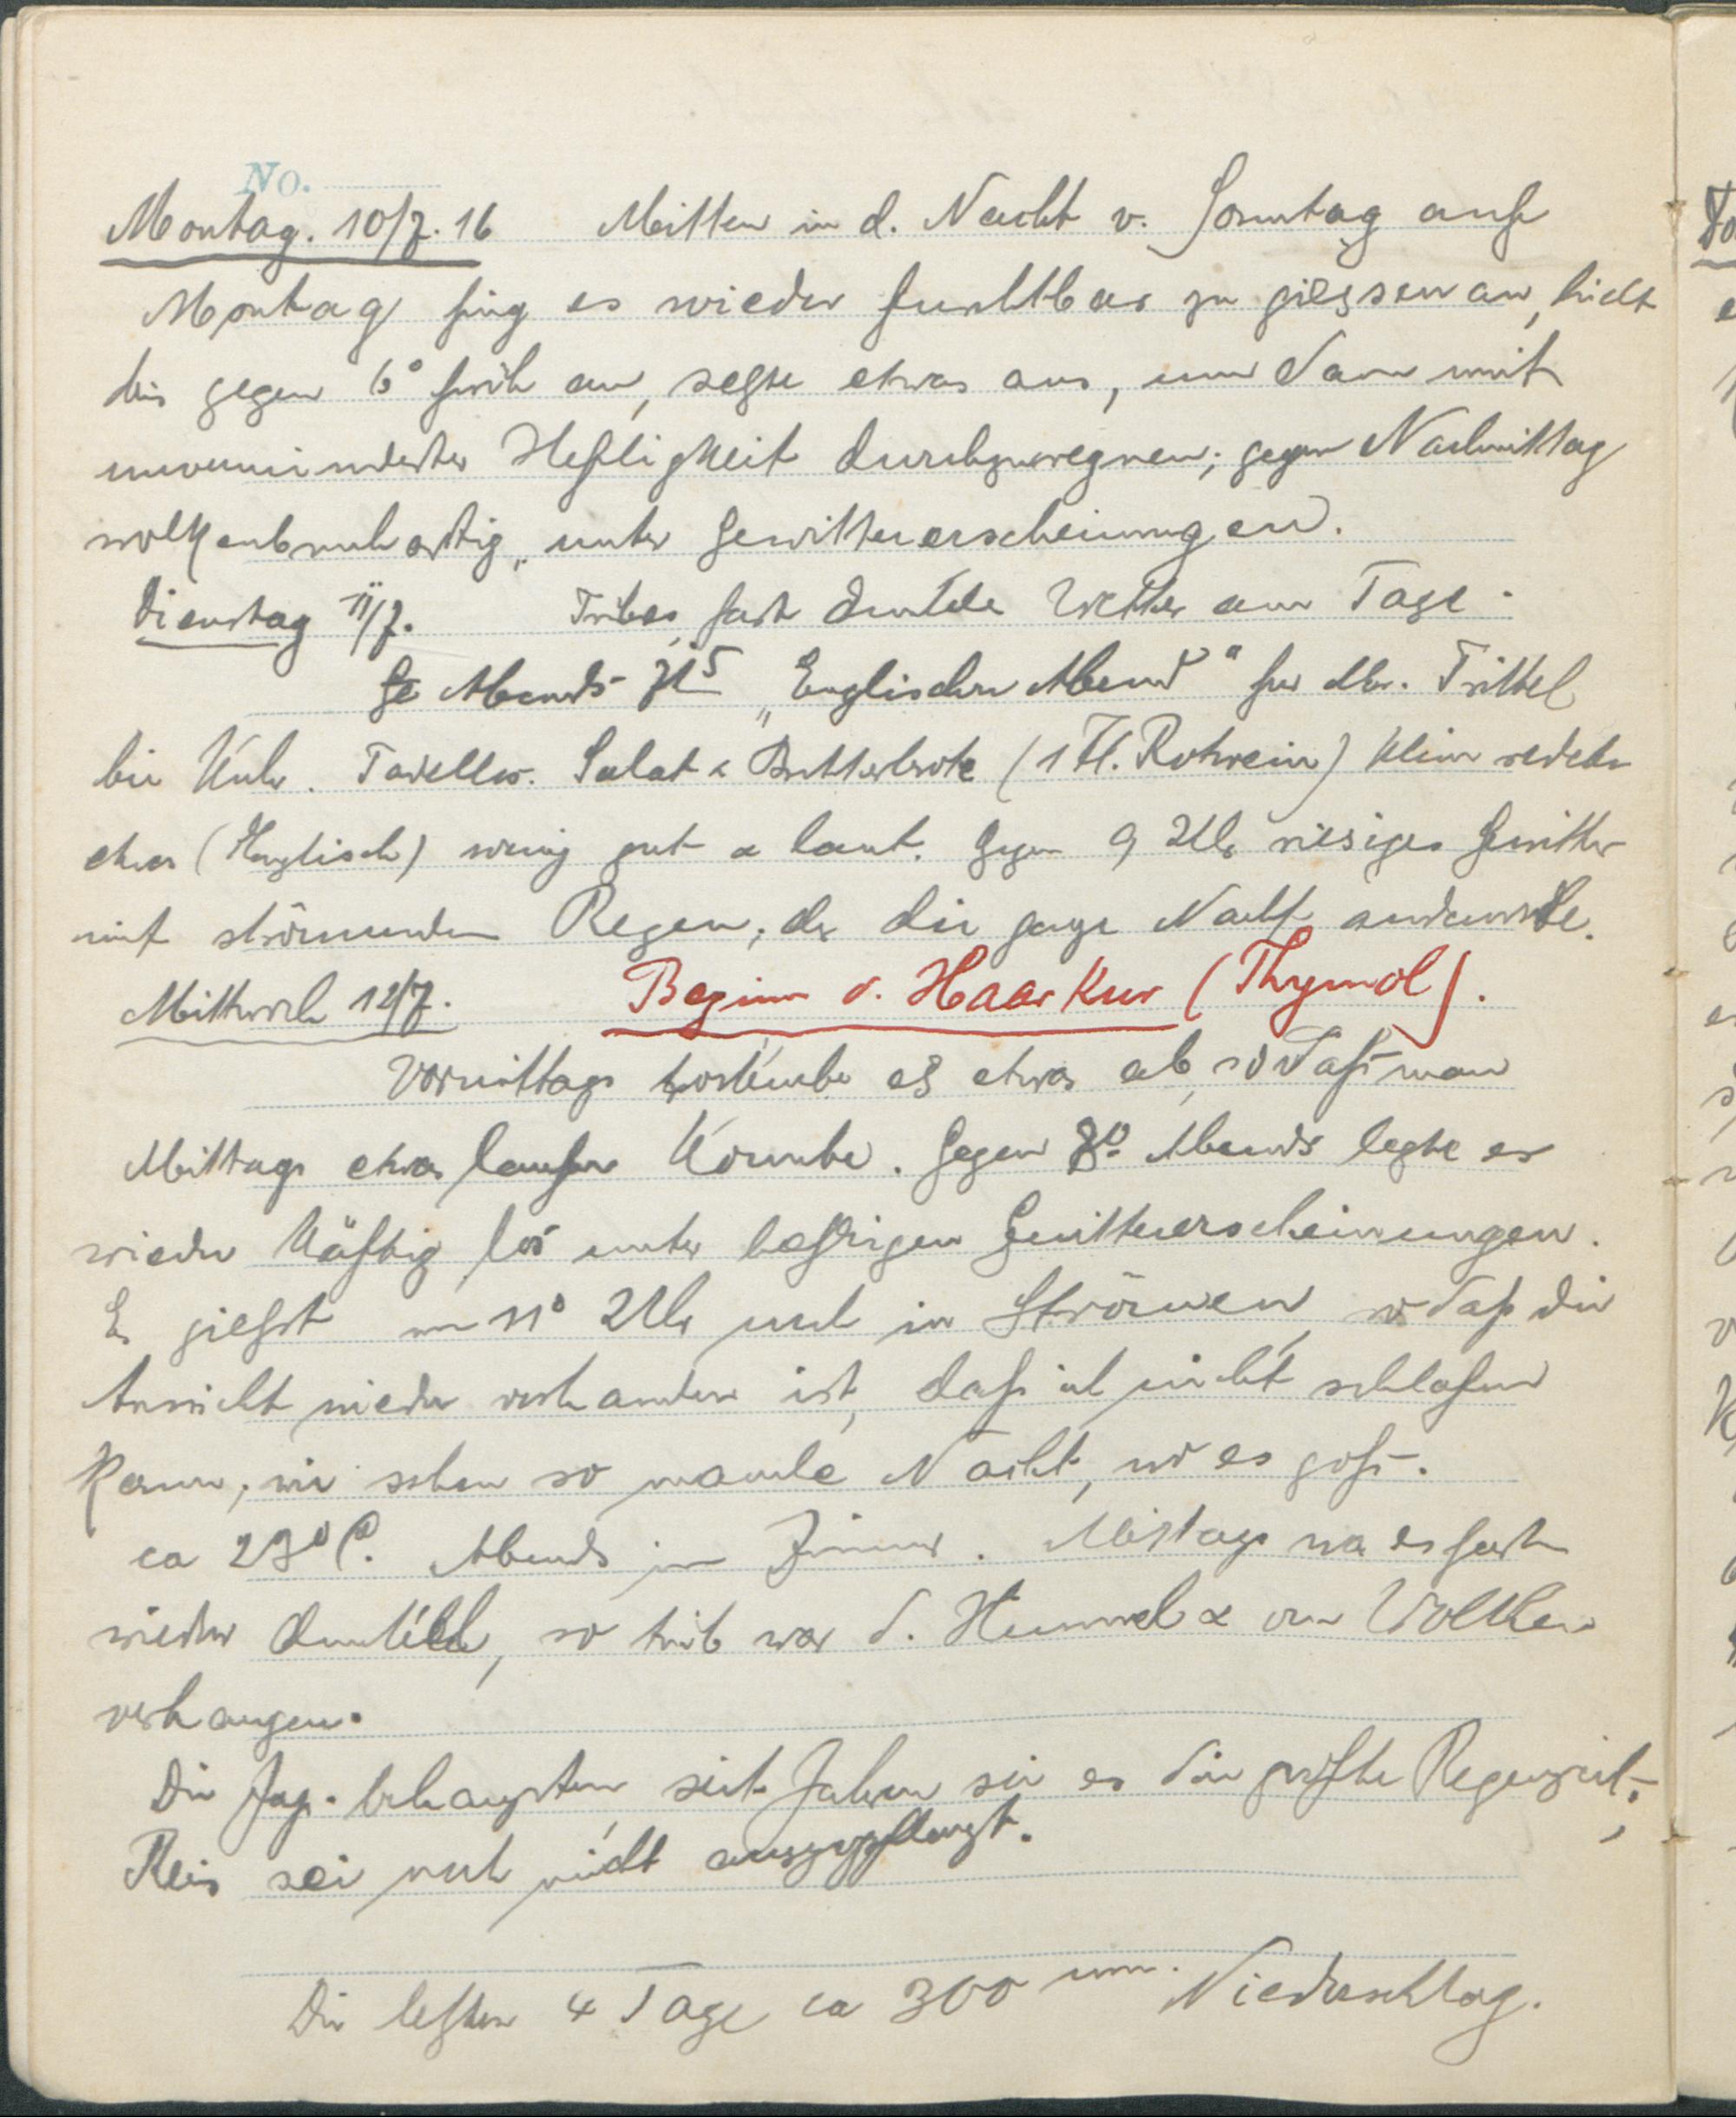 No.
Montag. 10/7. 16 Mitten in d. Nacht v. Sonntag auf
Montag fing es wieder furchtbar zu giessen an, hielt
bis gegen 6° früh an, setzte etwas aus, um dann mit
unverminderter Heftigkeit durchzuregnen; gegen Nachmittag
wolkenbruchartig, unter Gewittererscheinungen.
Dienstag 11/7. Trübes, fast dunkle Wetter am Tage.
Abends 7 15 „Englischer Abend" Trittel
bei Kuhr. Tadellos. Salat & Butterbrote (1 Fl. Rotwein) Klein redete
etwas (Englisch) wenig gut & laut. Gegen 9 Uhr riesiges Gewitter
mit strömenden Regen, der die ganze Nacht andauerte.
Mittwoch 12/7. Beginn d. Haarkur (Thymol).
Vormittags es etwas ab, so daß man
Mittags etwas laufen konnte. Gegen 8° Abends legte es
wieder kräftig los unter heftigen Gewittererscheinungen.
Es giesst um 11° Uhr noch in Strömen, so daß die
Aussicht wieder vorhanden ist, daß ich nicht schlafen
kann, wie schon so manche Nacht, wo es goß.
ca 23° C. Abends im Zimmer. Mittags war es fast
wieder dunkel, so trüb war d. Himmel & von Wolken
verhangen.
Die Jap. behaupten, seit Jahren sei es die größte Regenzeit;
Reis sei noch nicht ausgepflanzt.
Die letzten 4 Tage ca 300 mm. Niederschlag.